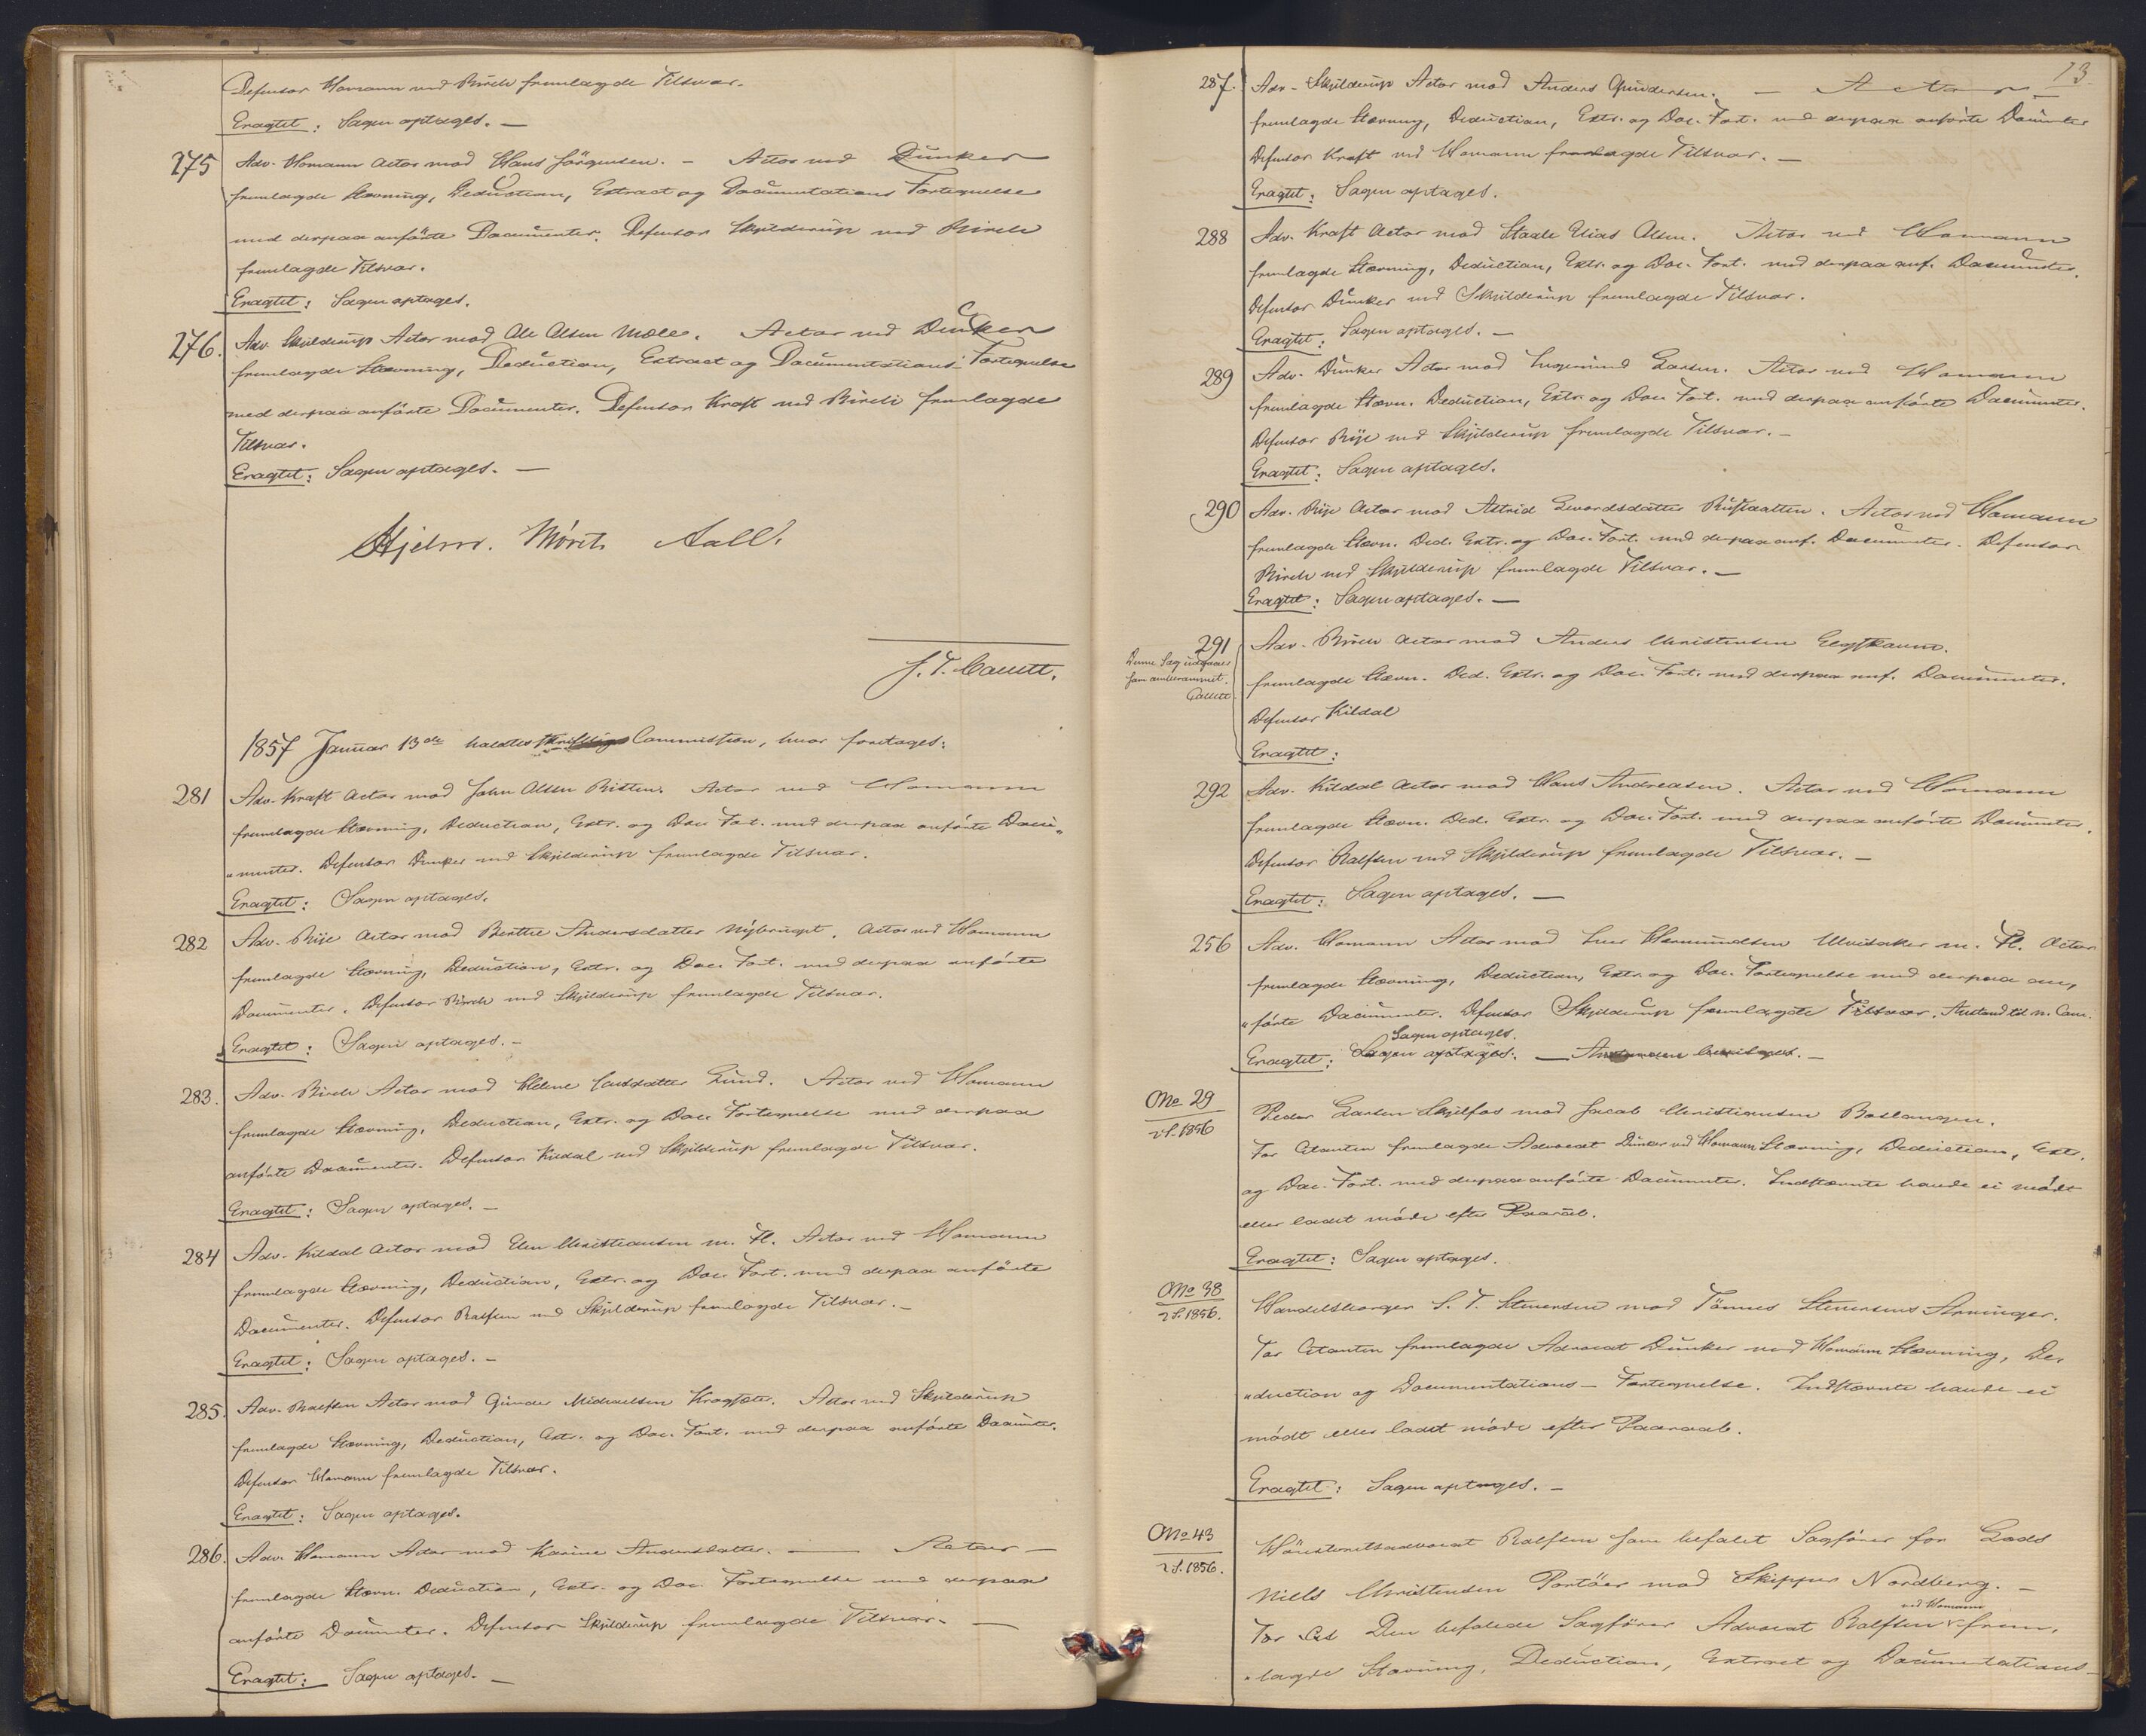 Defensor Homann ved Birch fremlagde Tilsvar.
Eragtet: Sagen optages. —
275 Adv. Homann Actor mod Hans Jörgensen. — Actor ved Dunker
fremlagde Stævning, Deduction, Extract og Documentations Fortegnelse
med derpaa anförte Documenter. Defensor Skjilderup ved Birch
fremlagde Tilsvar.
Eragtet: Sagen optages.
276. Adv. Skjilderup Actor mod Ole Olsen Mæle. Actor ved Dunker
fremlagde Stævning, Deduction, Extract og Documentations-Fortegnelse
med derpaa anförte Documenter. Defensor Kraft ved Birch fremlagde
Tilsvar.
Eragtet: Sagen optages. —
Hjelm. Mörch Aall.
J. T. Collett.
1857 Januar 13de holdtes skriftlig Commission, hvor foretoges:
281 Adv. Kraft Actor mod John Olsen Ritten. Actor ved Homann
fremlagde Stævning, Deduction, Extr. og Doc. Fort. med derpaa anförte Docu„
„menter. Defensor Dunker ved Skjilderup fremlagde Tilsvar.
Eragtet: Sagen optages.
282 Adv. Rije Actor mod Berthe Andersdatter Nybruget. Actor ved Homann
fremlagde Stævning, Deduction, Extr. og Doc. Fort. med derpaa anförte
Documenter. Defensor Birch ved Skjilderup fremlagde Tilsvar.
Eragtet: Sagen optages. —
283. Adv. Birch Actor mod Helene Lund. Actor ved Homann
fremlagde Stævning, Deduction, Extr. og Doc. Fortegnelse med derpaa
anförte Documenter. Defensor Kildal ved Skjilderup fremlagde Tilsvar.
Eragtet: Sagen optages. —
284 Adv. Kildal Actor mod Elen Christiansen m. Fl. Actor ved Homann
fremlagde Stævning, Deduction, Extr. og Doc. Fort. med derpaa anförte
Documenter. Defensor Ralfsen ved Skjilderup fremlagde Tilsvar. —
Eragtet: Sagen optages. —
285. Adv. Ralfsen Actor mod Gunder Michaelsen Kragsæter. Actor ved Skjilderup
fremlagde Stævning, Deduction, Extr. og Doc. Fort. med derpaa anförte Documter.
Defensor Homann fremlagde Tilsvar.
Eragtet: Sagen optages.
286. Adv. Homann Actor mod Karine Andersdatter. — Actor —
fremlagde Stævn. Deduction, Extr. og Doc. Fortegnelse med derpaa
anförte Documter. Defensor Skjilderup fremlagde Tilsvar. —
Eragtet: Sagen optages. —
13.
287. Adv. Skjilderup Actor mod Anders Gundersen. — Actor —
fremlagde Stævning, Deduction, Extr. og Doc. Fort. med derpaa anförte Documter
Defensor Kraft ved Homann fremlagde Tilsvar. —
Eragtet: Sagen optages.
288 Adv. Kraft Actor mod Staale Elias Olsen. Actor ved Homann
fremlagde Stævning, Deduction, Extr. og Doc. Fort. med derpaa anf. Documenter.
Defensor Dunker ved Skjilderup fremlagde Tilsvar.
Eragtet: Sagen optages. —
289 Adv. Dunker Actor mod Ingemund Larsen. Actor ved Homann
fremlagde Stævn. Deduction, Extr. og Doc. Fort. med derpaa anförte Documter.
Defensor Rije ved Skjilderup fremlagde Tilsvar. —
Eragtet: Sagen optages.
290 Adv. Rije Actor mod Astrid . Actor ved Homann
fremlagde Stævn. Ded. Extr. og Doc. Fort. med derpaa anf. Documenter. Defensor
Birch ved Skjilderup fremlagde Tilsvar. —
Eragtet: Sagen optages. —
291 Adv. Birch Actor mod Anders Christensen
Denne Sag udgaaer
som omberammet.
Collett
fremlagde Stævn. Ded. Extr. og Doc. Fort. med derpaa anf. Documenter.
Defensor Kildal
Eragtet:
292 Adv. Kildal Actor mod Hans Andreasen. Actor ved Homann
fremlagde Stævn. Ded. Extr. og Doc. Fort. med derpaa anförte Documter.
Defensor Ralfsen ved Skjilderup fremlagde Tilsvar. —
Eragtet: Sagen optages. —
256 Adv. Homann Actor mod Iver Hermundsen Ulvisaker m. Fl. Actor
fremlagde Stævning, Deduction, Extr. og Doc. Fortegnelse med derpaa an„
„förte Documenter. Defensor Skjilderup fremlagde Tilsvar. Anstand til n. Com.
Sagen optages.
Eragtet: Sagen optages. — Anstanden bevilges. —
No 29
2 S. 1856
Peder Larsen Skjelfos mod Jacob Christiansen Baslangen.
For Citanten fremlagde Advocat Dunker ved Homann Stævning, Deduction, Extr.
og Doc. Fort. med derpaa anförte Documenter. Indstævnte havde ei mödt
eller ladet möde efter Paaraab.
Eragtet: Sagen optages.
No 38
2 S. 1856.
Handelsborger S. T. Stenersen mod Tönnes Stenersens Arvinger.
For Citanten fremlagde Advocat Dunker ved Homann Stævning, De„
„duction og Documentations-Fortegnelse. Indstævnte havde ei
mödt eller ladet möde efter Paaraab.
Eragtet: Sagen optages. —
No 43
2 S. 1856.
Höiesteretsadvocat Ralfsen som befalet Sagförer for Lods
Niels Christensen Portöer mod Skipper Nordberg. —
ved Homann
For Cit Den befalede Sagförer Advocat Ralfsen frem„
„lagde Stævning, Deduction, Extract og Documentations-